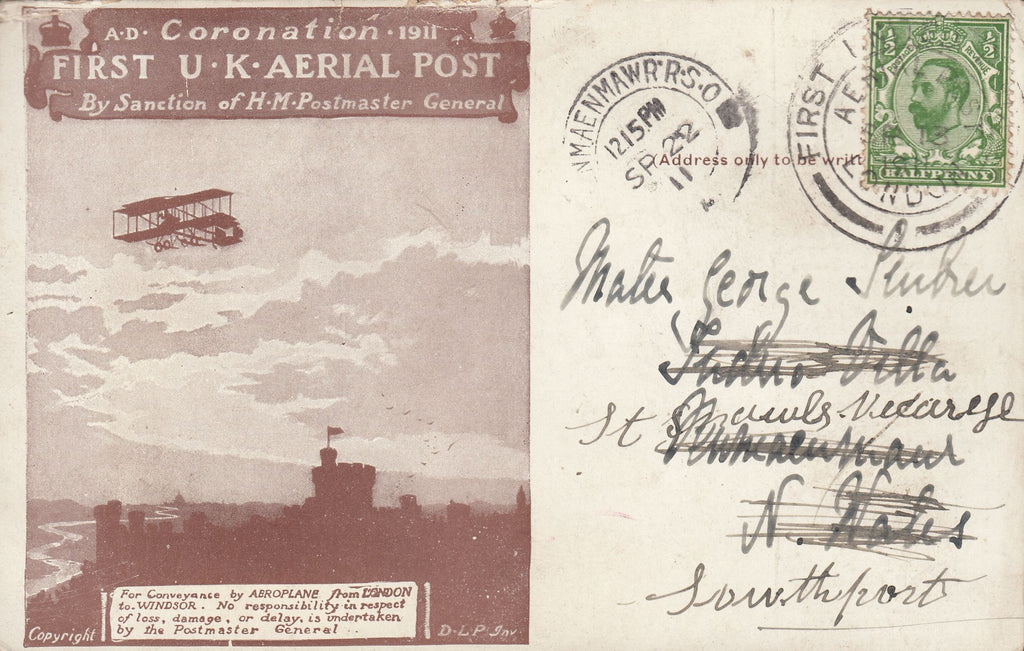 A·D· Coronation · 1911
FIRST U·K·AERIAL POST
By Sanction of H·M·Postmaster General
For Conveyance by AEROPLANE from LONDON
to WINDSOR. No responsibility in respect
of loss, damage, or delay, is undertaken
by the Postmaster General..
Copyright
D·L·P· Inv.
NMAENMAWR·R·S·O
12 15 PM
SP 22
11
(Address only to be writt
FIRST
AE
LONDON
½ ½
POSTAGE REVENUE
HALFPENNY
George
Villa
St
Penmaenmawr
N. Wales
Southport